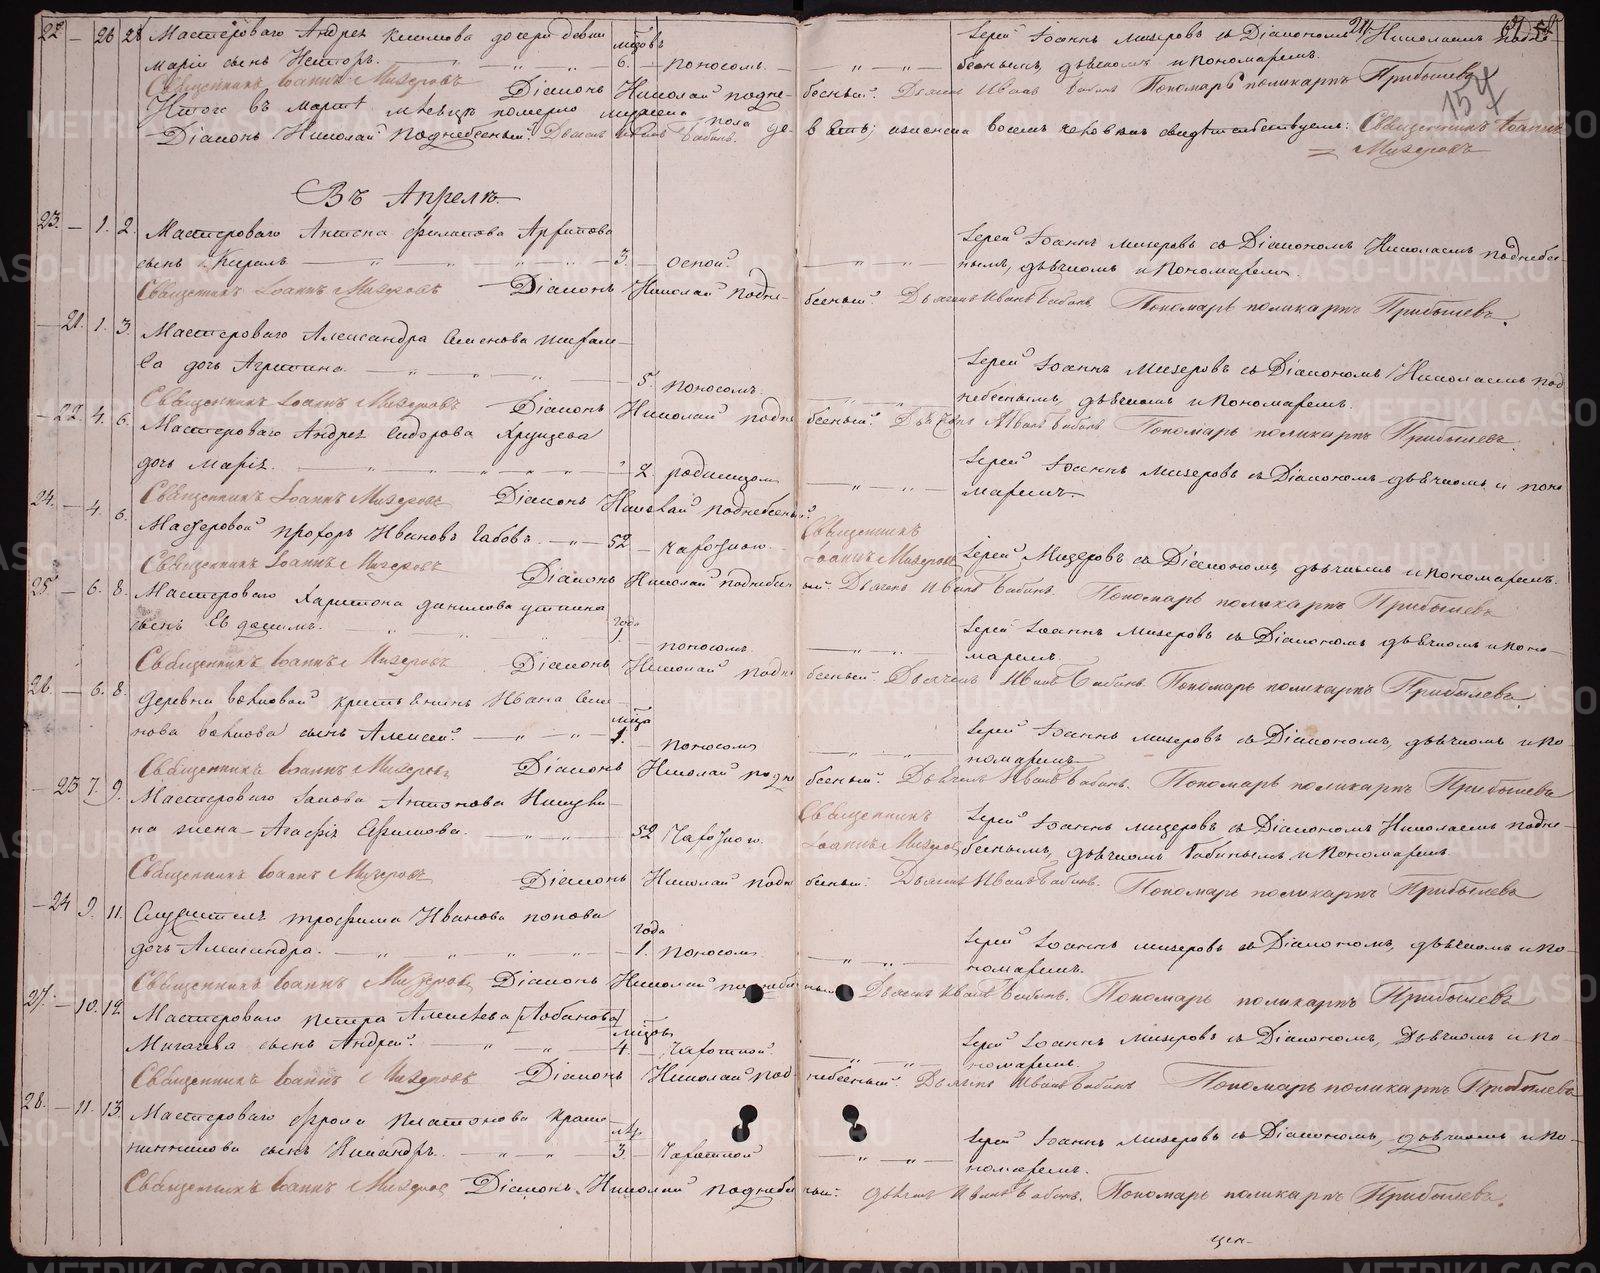 22 — 26 28 Мастероваго Андрея Климова дочери девки мцовъ Іерей Іоаннъ Мизеровъ съ Діакономъ Николаемъ подне-
Маріи сынъ Несторъ. — 6. — поносомъ. — беснымъ, дьячкомъ и пономаремъ.
Священникъ Іоаннъ Мизеровъ Діаконъ Николай подне- бесный. Дьячекъ Иванъ Бабинъ Пономарь поликарпъ Прибылевъ
154
Итого въ Мартѣ мѣсяцѣ померло мужеска пола
Діаконъ Николай Поднебесный. Дьячекъ Иванъ Бабинъ. Священникъ Іоаннъ
Мизеровъ
Въ Апрелѣ
23. — 1. 2. Мастероваго Антона Филатова Арѣпова Іерей Іоаннъ Мизеровъ съ Діакономъ Николаемъ поднебес-
сынъ Кирилъ — 3. — оспой. нымъ, дьячкомъ и пономаремъ.
Священникъ Іоаннъ Мизеровъ Діаконъ Николай подне- бесный. Дьячекъ Иванъ Бабинъ Пономарь поликарпъ Прибылевъ.
— 21. 1. 3. Мастероваго Александра Семенова
ва дочь Агрипина — 5. поносомъ. Іерей Іоаннъ Мизеровъ съ Діакономъ Николаемъ под-
небеснымъ, дьячкомъ и пономаремъ.
Священникъ Іоаннъ Мизеровъ Діаконъ Николай подне- бесный. Дьячекъ Иванъ Бабинъ Пономарь поликарпъ Прибылевъ.
— 22. 4. 6. Мастероваго Андрея Сидорова Хрущева
дочь Марія. — 2 родимцомъ Іерей Іоаннъ Мизеровъ съ Діакономъ дьячкомъ и поно-
маремъ.
Священникъ Іоаннъ Мизеровъ Діаконъ Николай Поднебесный.
24. — 4. 6. Мастеровой Прохоръ Ивановъ Бабовъ. — 52 — чахоткою. Священникъ
Іоаннъ Мизеровъ Іерей Мизеровъ съ Діакономъ, дьячкомъ и пономаремъ.
Священникъ Іоаннъ Мизеровъ Діаконъ Николай поднебесн- ый. Дьячекъ Иванъ Бабинъ. Пономарь поликарпъ Прибылевъ
25. — 6. 8. Мастероваго Харитона Данилова
сынъ Евдокимъ. — года 1 поносомъ. Іерей Іоаннъ Мизеровъ съ Діакономъ дьячкомъ и поно-
маремъ.
Священникъ Іоаннъ Мизеровъ Діаконъ Николай подне- бесный. Дьячекъ Иванъ Бабинъ. Пономарь поликарпъ Прибылевъ.
26. — 6. 8. Деревни Волковой крестьянинъ Ивана Семе-
нова Волкова сынъ Алексей. — мца 1. — поносомъ Іерей Іоаннъ Мизеровъ съ Діакономъ, дьячкомъ и по-
номаремъ.
Священникъ Іоаннъ Мизеровъ Діаконъ Николай подне- бесный. Дьячекъ Иванъ Бабинъ. Пономарь поликарпъ Прибылевъ
— 23 7. 9. Мастероваго Іакова Антонова
на жена Агафія Ефимова. — 52 Чахоткою. Священникъ
Іоаннъ Мизеровъ Іерей Іоаннъ Мизеровъ съ Діакономъ Николаемъ подне-
беснымъ, дьячкомъ Бабинымъ и Пономаремъ.
Священникъ Іоаннъ Мизеровъ Діаконъ Николай подне- бесный. Дьячекъ Иванъ Бабинъ. Пономарь поликарпъ Прибылевъ
— 24 9. 11. Служителя Трофима Иванова попова
дочь Александра. — года 1. поносомъ Іерей Іоаннъ Мизеровъ съ Діакономъ, дьячкомъ и по-
номаремъ.
Священникъ Іоаннъ Мизеровъ Діаконъ Николай поднебесный Дьячекъ Иванъ Бабинъ. Пономарь поликарпъ Прибылевъ
27. — 10. 12. Мастероваго Петра Алексѣева [Лобанова]
Мигачева сынъ Андрей. — мцовъ 4. — Чахоткой. Іерей Іоаннъ Мизеровъ съ Діакономъ, Дьячкомъ и по-
номаремъ.
Священникъ Іоаннъ Мизеровъ Діаконъ Николай под- небесный. Дьячекъ Иванъ Бабинъ Пономарь поликарпъ Прибылевъ
28. — 11. 13. Мастероваго Фрола Платонова Краше-
нинникова сынъ Никандръ. — 3. — Чахоткой Іерей Іоаннъ Мизеровъ съ Діакономъ, дьячкомъ и по-
номаремъ.
Священникъ Іоаннъ Мизеровъ Діаконъ Николай поднебесный. Дьячекъ Иванъ Бабинъ. Пономарь поликарпъ Прибылевъ.